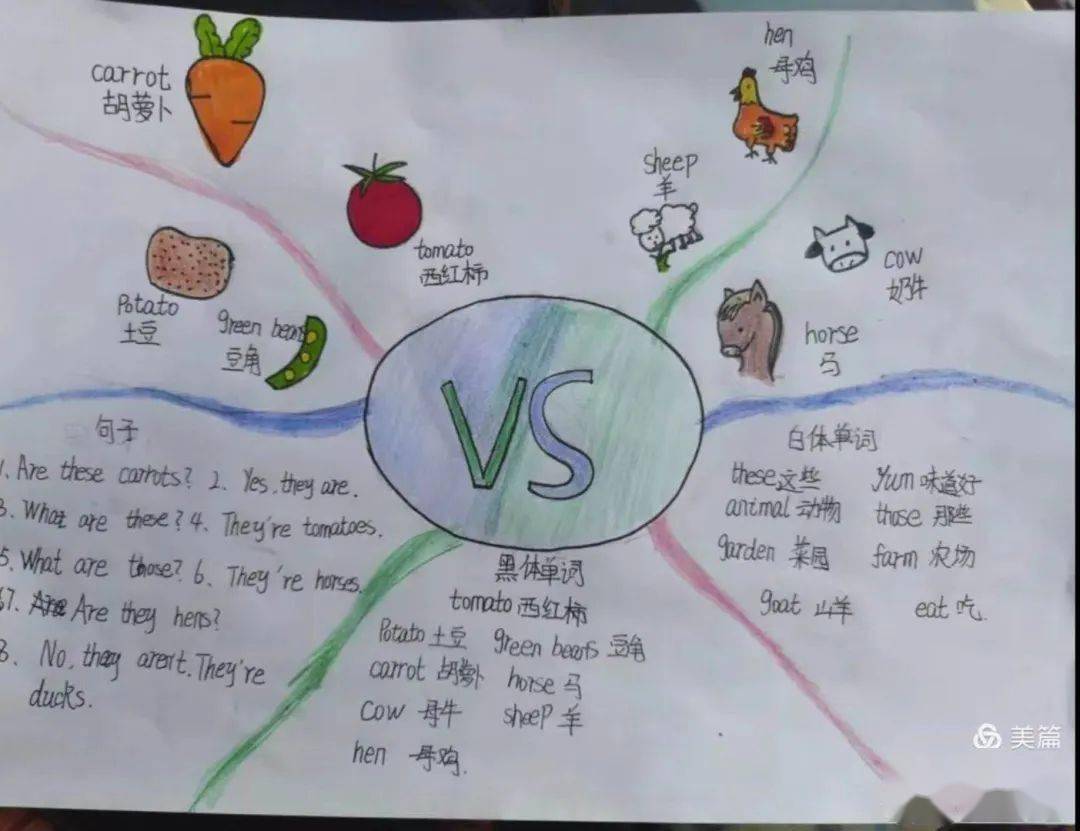 carrot
胡萝卜
tomato
西红柿
Potato
土豆
green beans
豆角
hen
母鸡
sheep
羊
cow
奶牛
horse
马
VS
句子
1. Are these carrots? 2. Yes, they are.
3. What are these? 4. They're tomatoes.
5. What are those? 6. They're horses.
7. Are they hens?
8. No, they aren't. They're
ducks.
黑体单词
tomato 西红柿
Potato 土豆 green beans 豆角
carrot 胡萝卜 horse 马
cow 母牛 sheep 羊
hen 母鸡.
白体单词
these 这些 Yum 味道好
animal 动物 those 那些
garden 菜园 farm 农场
goat 山羊 eat 吃.
美篇